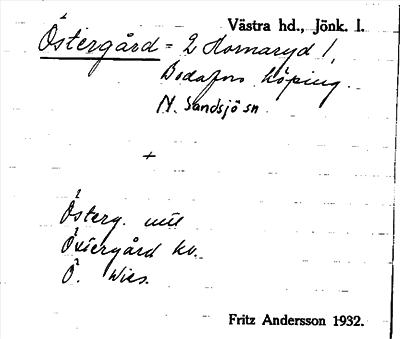 Västra hd., Jönk. l.
Östergård = 2 Hornaryd 1,
Bodafors köping.
N. Sandsjö sn
+
Österg. mtl
Östergård kv.
Ö.
Fritz Andersson 1932.